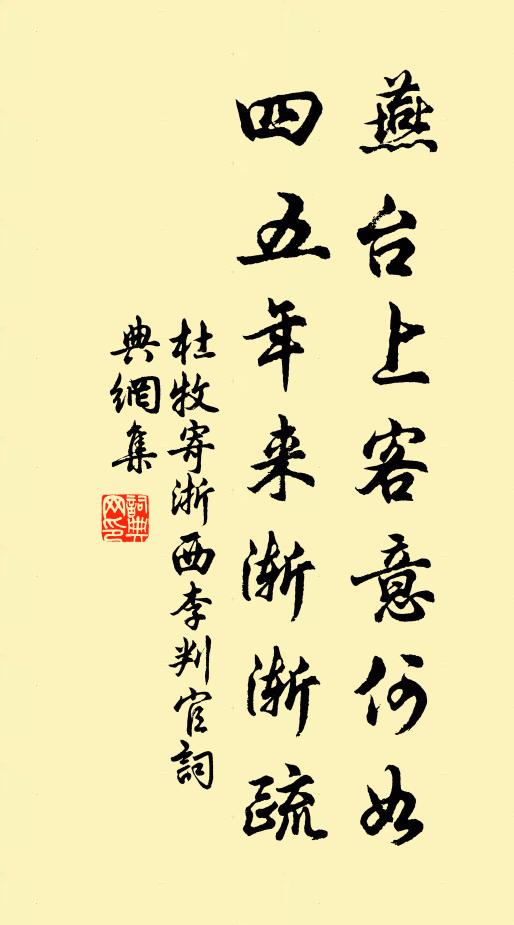 燕台上客意何如
四五年来渐渐疏
杜牧寄浙西李判官詞
典網集
詞典网印